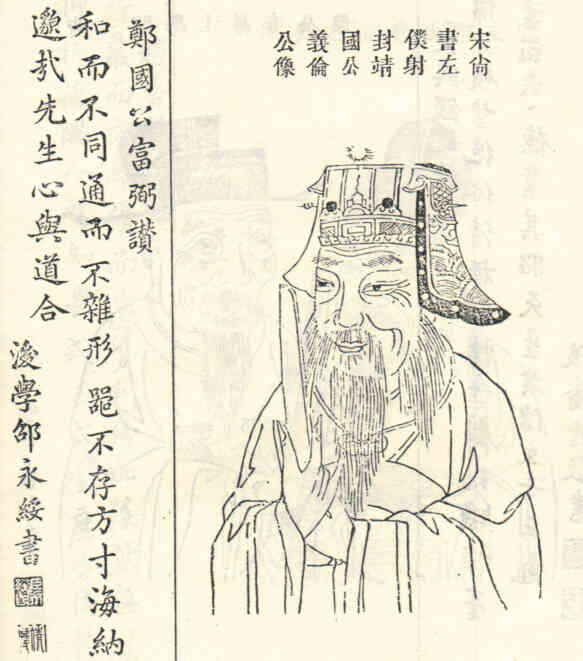 宋尚
書左
僕射
封靖
國公
義倫
公像
鄭國公富弼讃
和而不同通而不雜形器不存方寸海納
邈哉先生心與道合
後學邵永綏書